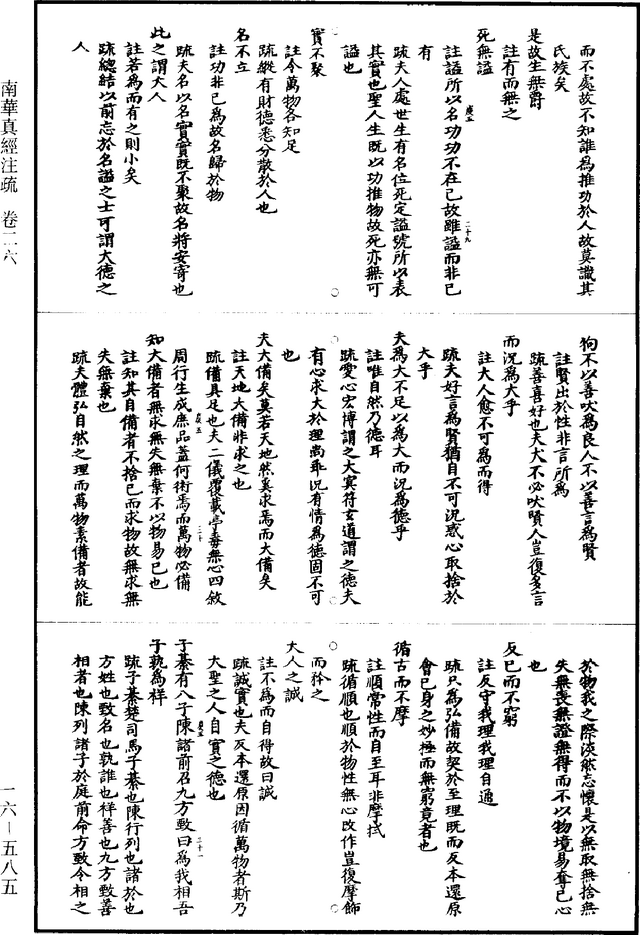 而不處故不知誰為推功於人故莫識其
氏族矣
是故生無爵
註有而無之
死無謚
註謚所以名功功不在己故雖謚而非己
有
疏夫人處世生有名位死定謚號所以表
其實也聖人生既以功推物故死亦無可
謚也
實不聚
註令萬物各知足
疏縱有財德悉分散於人也
名不立
註功非己為故名歸於物
疏夫名以名實實既不聚故名將安寄也
此之謂大人
註若為而有之則小矣
疏總結以前忘於名謚之士可謂大德之
人
狗不以善吠為良人不以善言為賢
註賢出於性非言所為
疏善喜好也夫犬不必吠賢人豈復多言
而況為大乎
註大人愈不可為而得
疏夫好言為賢猶自不可況惑心取捨於
大乎
夫為大不足以為大而況為德乎
註唯自然乃德耳
疏愛心宏博謂之大冥符玄道謂之德夫
有心求大於理尚乖況有情為德固不可
也
夫大備矣莫若天地然奚求焉而大備矣
註天地大備非求之也
疏備具足也夫二儀覆載亭毒無心四敘
周行生成庶品蓋何術焉而萬物必備
知大備者無求無失無棄不以物易己也
註知其自備者不捨己而求物故無求無
失無棄也
疏夫體弘自然之理而萬物素備者故能
於物我之際淡然忘懷是以無取無捨無
失無喪無證無得而不以物境易奪己心
也
反己而不窮
註反守我理我理自通
疏只為弘備故契於至理既而反本還原
會己身之妙極而無窮竟者也
循古而不摩
註順常性而自至耳非摩拭
疏循順也順於物性無心改作豈復摩飾
而矜之
大人之誠
註不為而自得故曰誠
疏誠實也夫反本還原因循萬物者斯乃
大聖之人自實之德也
子綦有八子陳諸前召九方歅曰為我相吾
子孰為祥
疏子綦楚司馬子綦也陳行列也諸於也
方姓也歅名也孰誰也祥善也九方歅善
相者也陳列諸子於庭前命方歅令相之
南華真經注疏　卷二六
一六－五八五